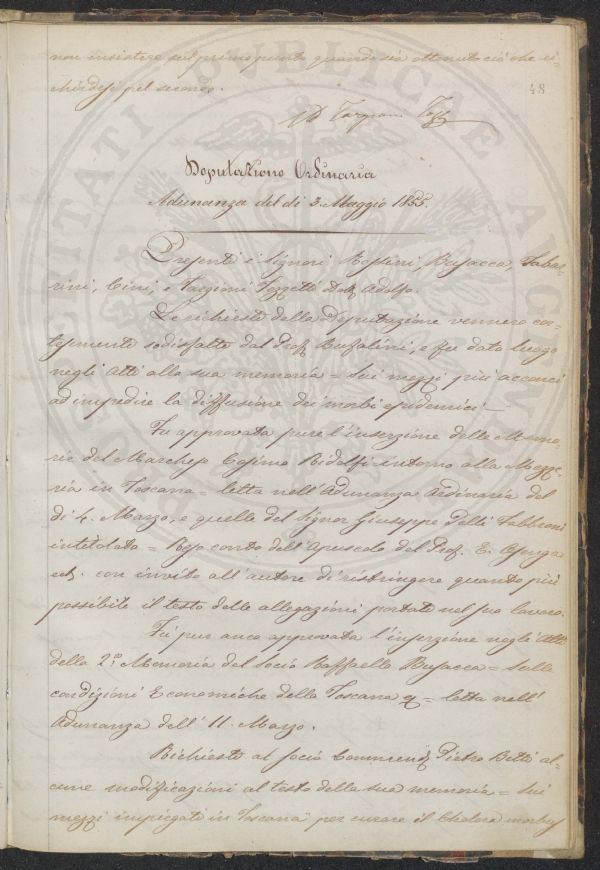 non insistere sul primo punto quando sia ottenuto ciò che ri-
chiedesi pel secondo.
48
AD Targioni Tozz
Deputazione Ordinaria
Adunanza del dì 3. Maggio 1855.
Presenti i Signori Rossini, Busacca, Tabar-
rini, Cini, e Targioni Tozzetti Dott. Adolfo.
Le richieste della Deputazione vennero cor-
tesemente sodisfatte dal Prof. Bufalini, e fu dato luogo
negli Atti alla sua memoria = Sui mezzi più acconci
ad impedire la diffusione dei morbi epidemici! —
Fu approvata pure l'inserzione della Memo-
ria del Marchese Cosimo Ridolfi intorno alla Mezze-
ria in Toscana = letta nell'Adunanza Ordinaria del
dì 4. Marzo, e quella del Signor Giuseppe Della Fabbroni
intitolata = Reso conto dell'Opuscolo del Prof. E.
ect. con invito all'autore di ristringere quanto più
possibile il testo delle allegazioni portate nel suo lavoro.
Fù pur anco approvata l'inserzione negli Atti
della 2ª Memoria del Socio Raffaello Busacca = Sulle
condizioni Economiche della Toscana = letta nell'
Adunanza dell'11. Marzo.
Richieste al Socio Commend. Pietro Betti al-
cune modificazioni al testo della sua memoria = Sui
mezzi impiegati in Toscana per curare il Cholera morbus
PROSPERITATI PUBLICAE AUGENDAE